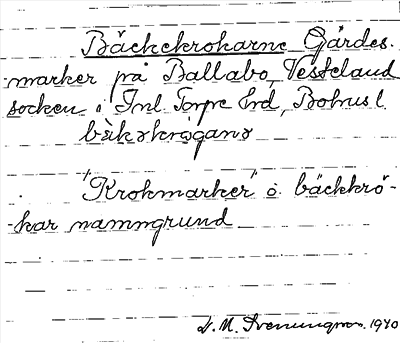 Bäckekrokarne Gårdes-
marker på Ballabo, Vestelaud
socken i Inl Torpe hrd, Bohusl.
bækɜkrogană
"Krokmarker" o bäckkrö-
-kar namngrund
D. M. Svenungsson. 1940